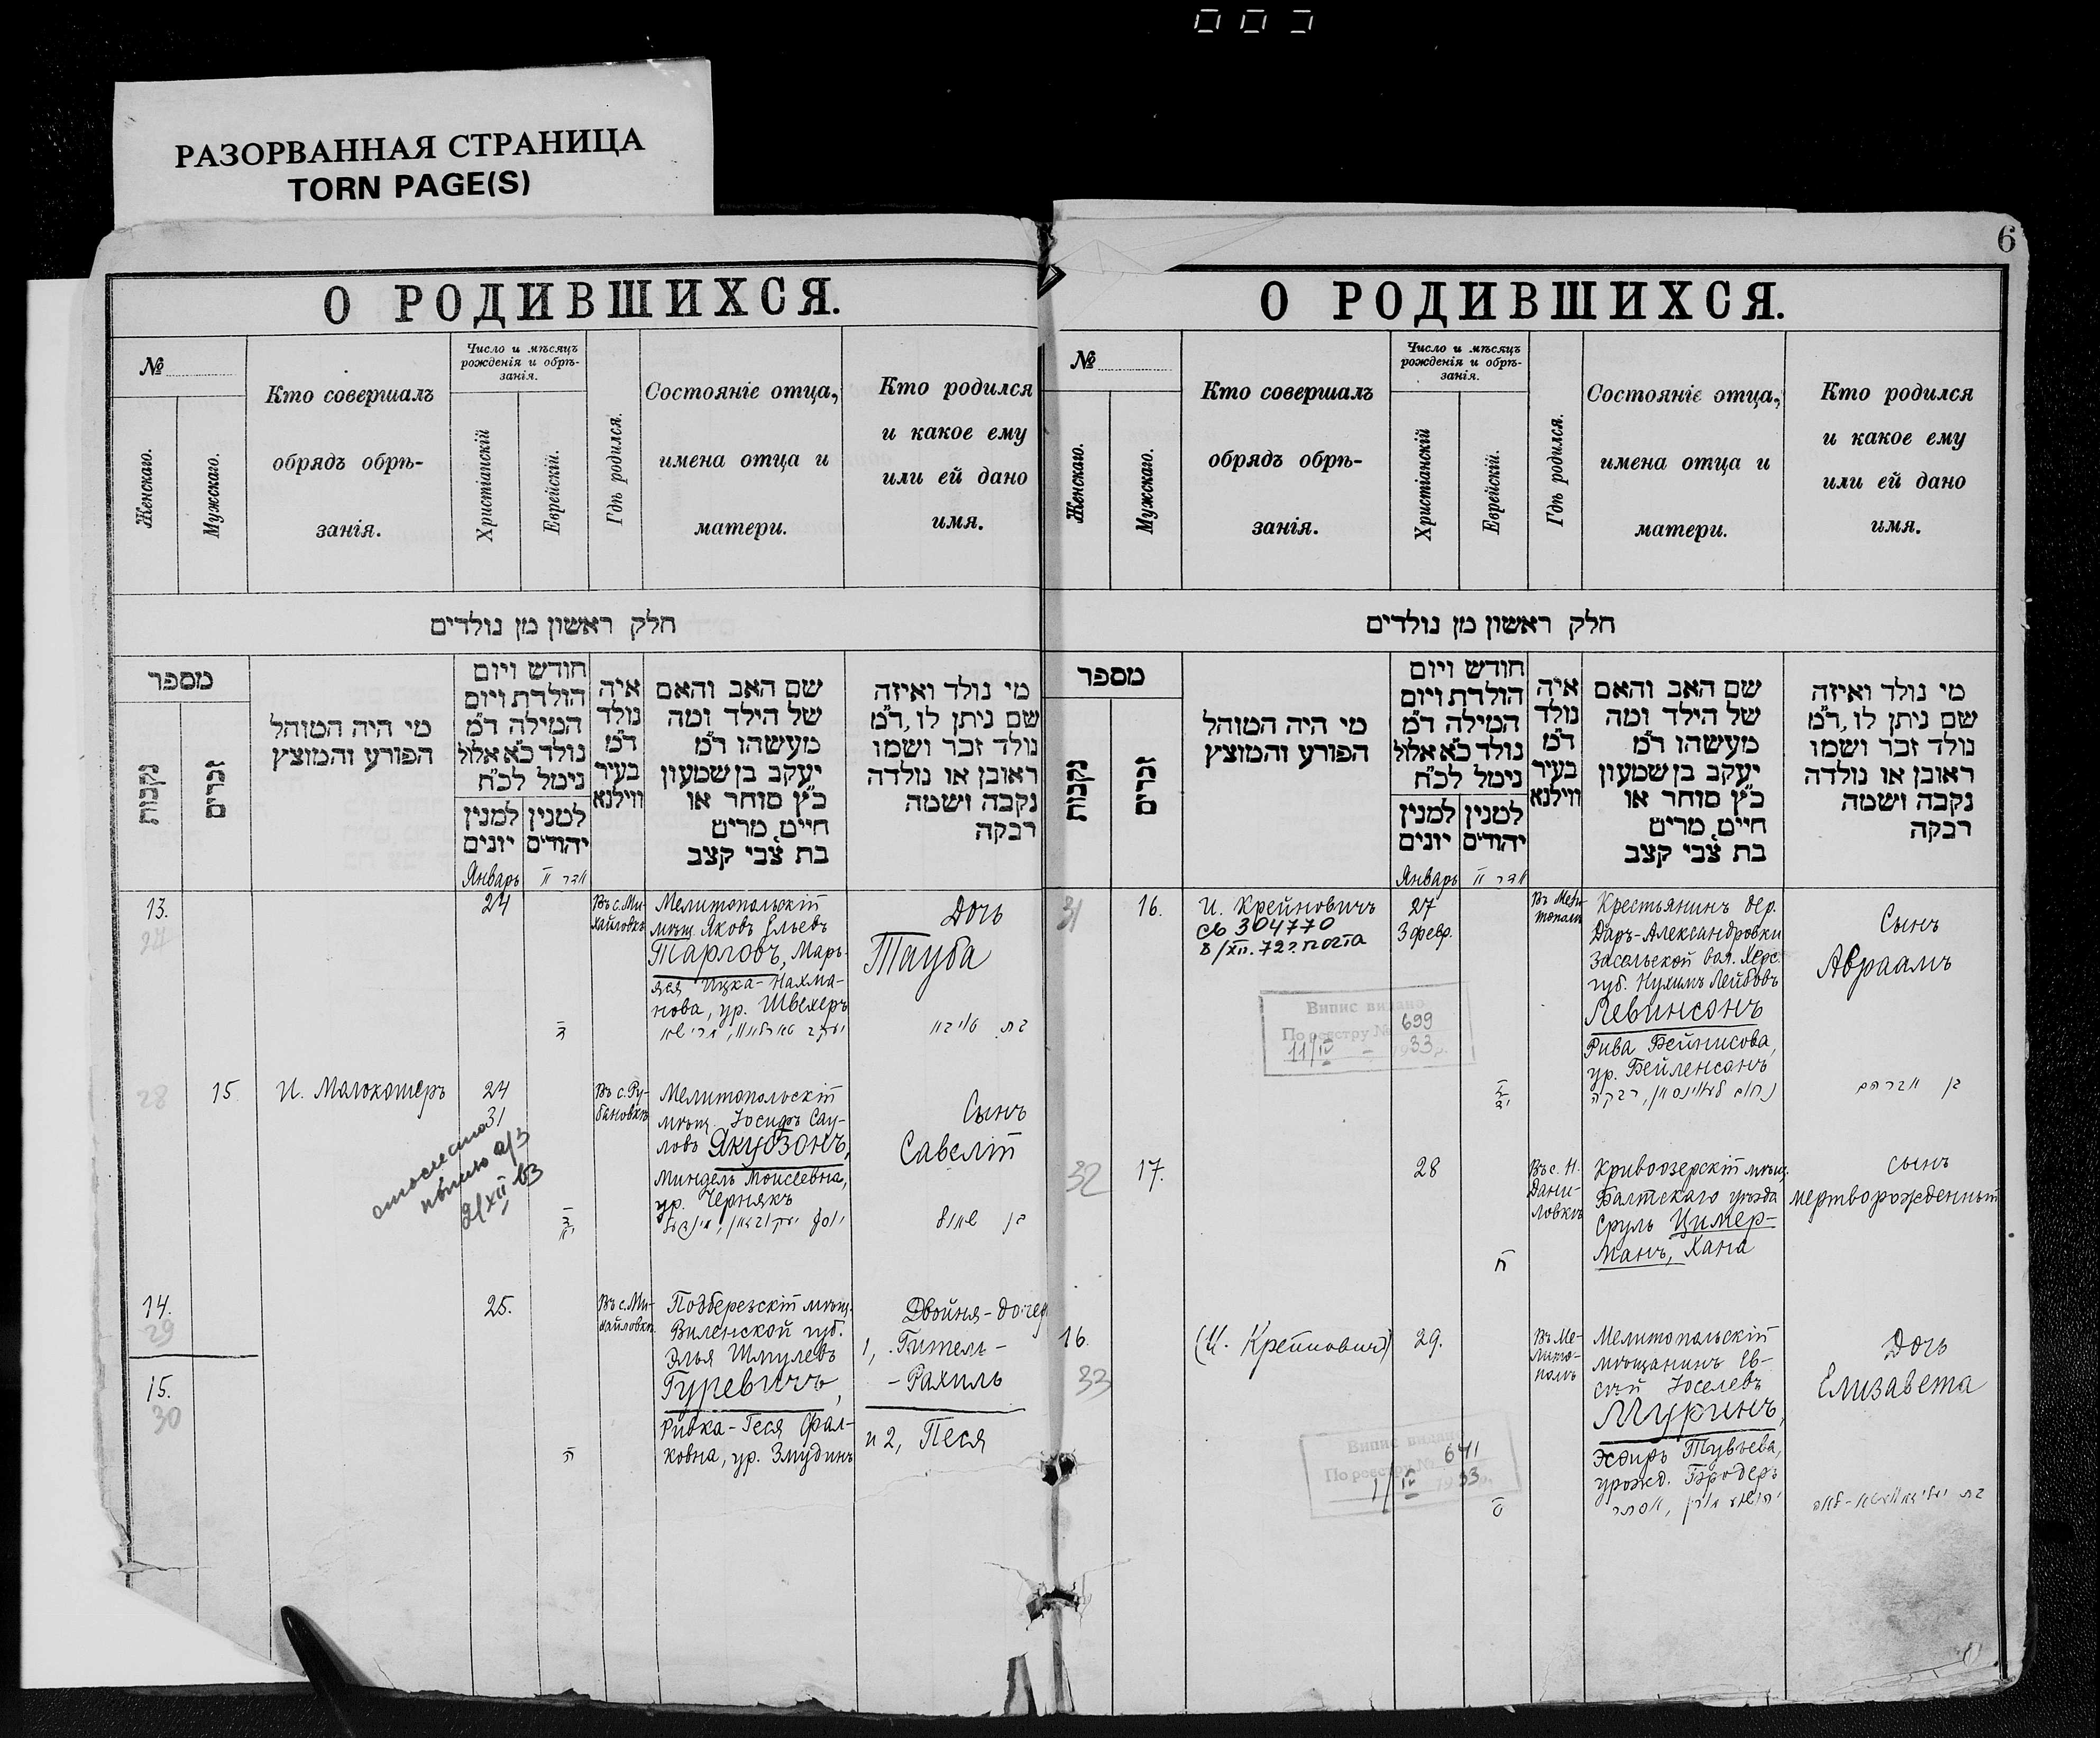 РАЗОРВАННАЯ СТРАНИЦА
TORN PAGE(S)
О РОДИВШИХСЯ.
№
Женскаго.
Мужскаго.
Кто совершалъ
обрядъ обрѣ-
занія.
Число и мѣсяцъ
рожденія и обрѣ-
занія.
Христіанскій
Еврейскій.
Гдѣ родился.
Состояніе отца,
имена отца и
матери.
Кто родился
и какое ему
или ей дано
имя.
חלק ראשון מן נולדים
מספר
נקבות
זכרים
מי היה המוהל
הפורע והמוצץ
חודש ויום
הולדת ויום
המילה ד״מ
נולד כ״א אלול
נימל לכ״ח
למנין יונים
למנין יהודים
איה
נולד
ד״מ
בעיר
ווילנא
שם האב והאם
של הילד ומה
מעשהו ד״מ
יעקב בן שמעון
כ״ץ סוחר או
חיים, מרים
בת צבי קצב
מי נולד ואיזה
שם ניתן לו, ד״מ
נולד זכר ושמו
ראובן או נולדה
נקבה ושמה
רבקה
Январь
13.
24
Въ с. Ми-
хайловкѣ
Мелитопольскій
мѣщ. Яковъ Ельевъ
Тарловъ, Марь-
яся Ицка-Нахма-
нова, ур. Швехеръ
Дочь
Тауба
28
15
И. Молокомеръ
24
31
2/XII 63
Въ с. Ру-
бановкѣ
Мелитопольскій
мѣщ. Іосифъ Сау-
ловъ Якубзонъ,
Миндель Моисеевна,
ур. Чернякъ
Сынъ
Савелій
בן שאול
14.
29
15.
30
25.
Въ с. Ми-
хайловкѣ
Подберезскій мѣщ.
Виленской губ.
Элья Шмулевъ
Гуревичъ,
Ривка-Геся Фал-
ковна, ур. Змудинъ
Двойня-дочер
1, Гитель-
-Рахиль
и 2, Песя
6
О РОДИВШИХСЯ.
№
Женскаго.
Мужскаго.
Кто совершалъ
обрядъ обрѣ-
занія.
Число и мѣсяцъ
рожденія и обрѣ-
занія.
Христіанскій
Еврейскій.
Гдѣ родился.
Состояніе отца,
имена отца и
матери.
Кто родился
и какое ему
или ей дано
имя.
חלק ראשון מן נולדים
מספר
נקבות
זכרים
מי היה המוהל
הפורע והמוצץ
חודש ויום
הולדת ויום
המילה ד״מ
נולד כ״א אלול
נימל לכ״ח
למנין יונים
למנין יהודים
איה
נולד
ד״מ
בעיר
ווילנא
שם האב והאם
של הילד ומה
מעשהו ד״מ
יעקב בן שמעון
כ״ץ סוחר או
חיים, מרים
בת צבי קצב
מי נולד ואיזה
שם ניתן לו, ד״מ
נולד זכר ושמו
ראובן או נולדה
נקבה ושמה
רבקה
Январь
31
16.
И. Крейновичъ
св 304770
8/XII. 72 г. почта
27
3 февр.
Въ Мели-
тополѣ
Крестьянинъ дер.
Даръ-Александровки
Засельской вол. Херс.
губ. Нухимъ Лейбовъ
Левинсонъ
Рива Бейнисова,
ур. Бейленсонъ
Сынъ
Авраамъ
בן אברהם
Випис видано
По реестру № 699
11/IV - 1933 р.
32
17.
28
Въ с. Н.
Дани-
ловкѣ
Кривоозерскій мѣщ.
Балтскаго уѣзда
Сруль Цимер-
манъ, Хана
сынъ
мертворожденный
16.
33
(И. Крейновичъ)
29.
Въ Ме-
лито-
полѣ
Мелитопольскій
мѣщанинъ Ев-
сѣй Іоселевъ
Муринъ,
Эсфирь Тувьева,
урожд. Бродеръ
Дочь
Елизавета
Випис видано
По реестру № 641
1/IV 1933 р.